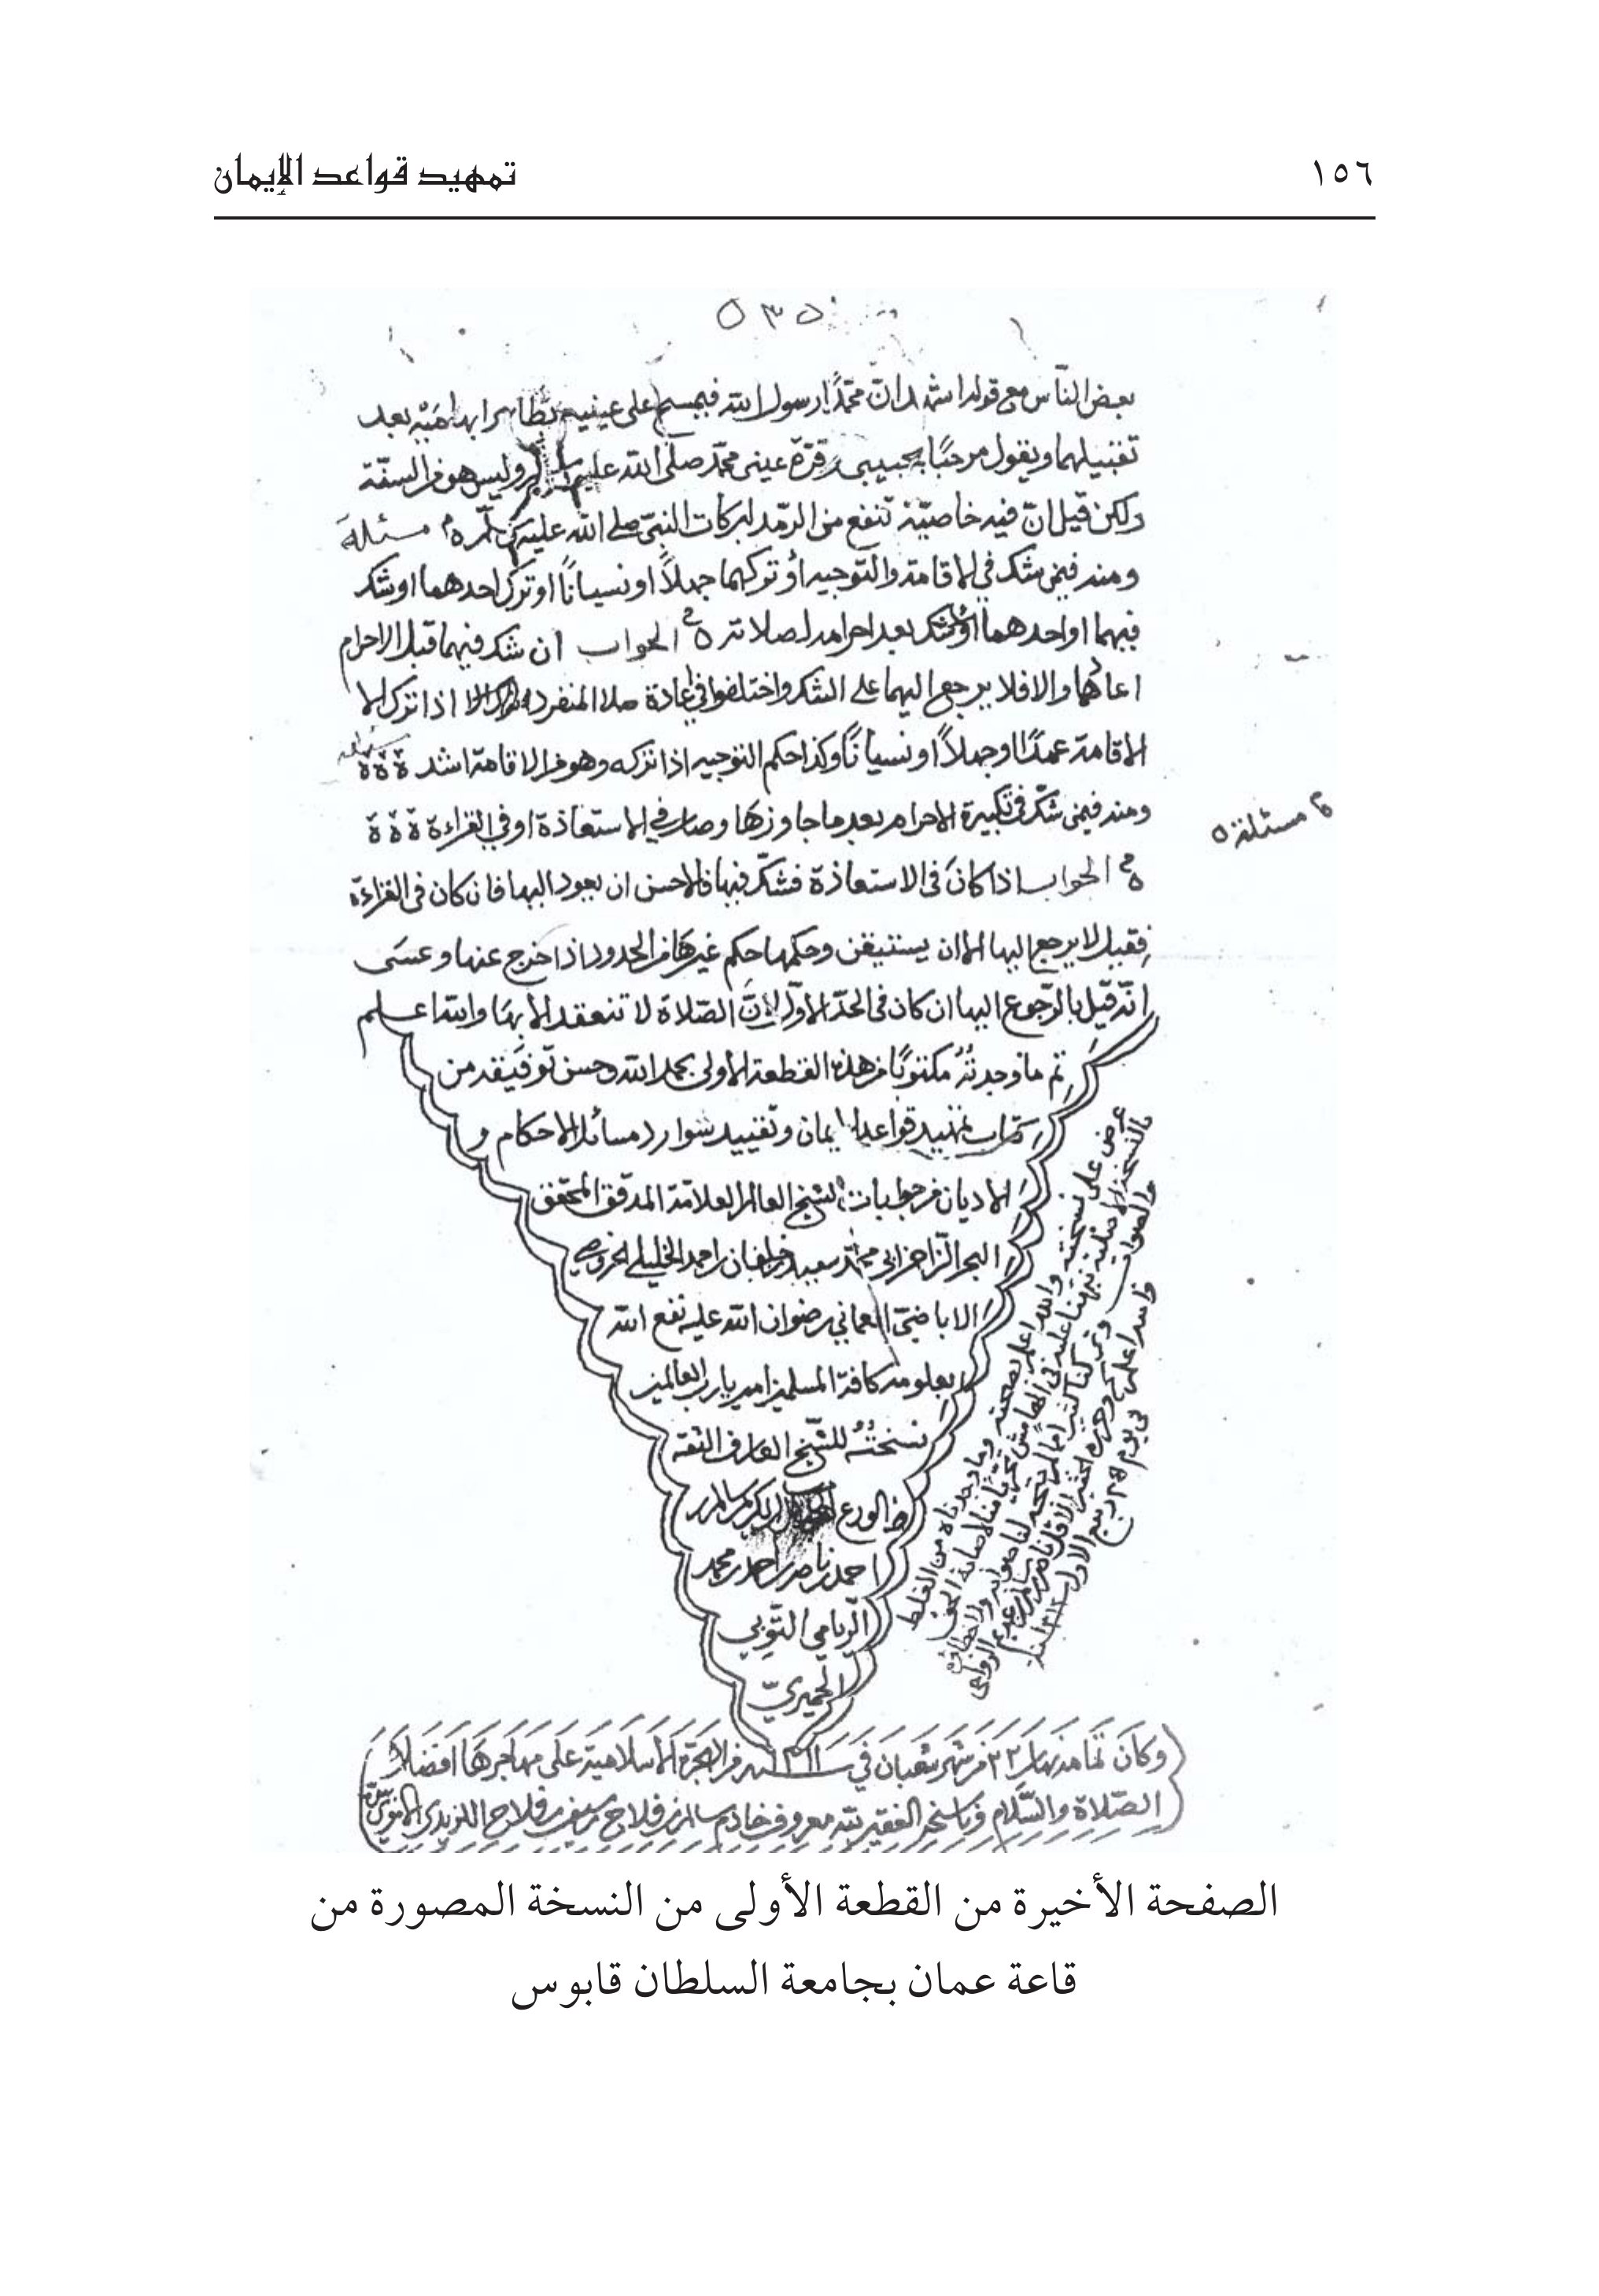 ١٥٦
تمهيد قواعد الإيمان
٥٣٥
بعض الناس مع قوله اشهد انّ محمّدًا رسول الله فيمسح على عينيه بظاهر ابهاميه بعد
تقبيلهما ويقول مرحبًا بحبيبى وقرّة عينى محمّد صلى الله عليه وليس هو من السنّة
ولكن قيل انّ فيه خاصيّة تنفع من الرمد لبركات النبىّ صلى الله عليه مسئلة
ومنه فيمن شك في الاقامة والتوجيه أو تركهما جهلًا او نسيانًا او ترك احدهما او شك
فيهما او احدهما بعد احرامه لصلاته الجواب ان شك فيهما قبل الاحرام
اعادهما والا فلا يرجع اليهما على الشك واختلفوا في إعادة صلاة المنفرد اذا ترك الا
الاقامة عمدًا او جهلًا او نسيانًا وكذا حكم التوجيه اذا تركه وهو في الاقامة اشد
ومنه فيمن شكّ في تكبيرة الاحرام بعد ما جاوزها وصار في الاستعاذة او في القراءة
مسئلة
الجواب اذا كان فى الاستعاذة فشكّ فيها فالاحسن ان يعود اليها فان كان فى القراءة
فقيل لا يرجع اليها الا ان يستيقن وحكمها حكم غيرها من الحدود اذا خرج عنها وعسى
انّه قيل بالرّجوع اليها ان كان فى الحدّ الاوّل لانّ الصّلاة لا تنعقد الا بها والله اعلم
تم ما وجدتُه مكتوبًا من هذه القطعة الأولى بحمد الله وحسن توفيقه من
كتاب تمهيد قواعد الايمان وتقييد شوارد مسائل الاحكام و
الاديان من جوابات الشيخ العالم العلامة المدقق المحقق
البحر الزاخر ابي محمّد سعيد بن خلفان بن احمد الخليلي الخروصي
الاباضيّ العماني رضوان الله عليه نفع الله
بعلومه كافة المسلمين امين يا رب العالمين
نسختُهُ للشّيخ العارف الثقة
الورع
احمد بن ناصر بن احمد بن محمد
الرّيامي التّوبي
الحميريّ
عرض على نسخته والله اعلم بصحته وما وجدناه من الغلط
وكان تمامه نهار ٢٢ من شهر شعبان في سنة ١٣١١ من الهجرة الاسلامية على مهاجرها افضل
الصّلاة والسّلام وناسخه الفقير لله معروف خادم سالم بن فلاح بن سيف بن فلاح
الصفحة الأخيرة من القطعة الأولى من النسخة المصورة من
قاعة عمان بجامعة السلطان قابوس